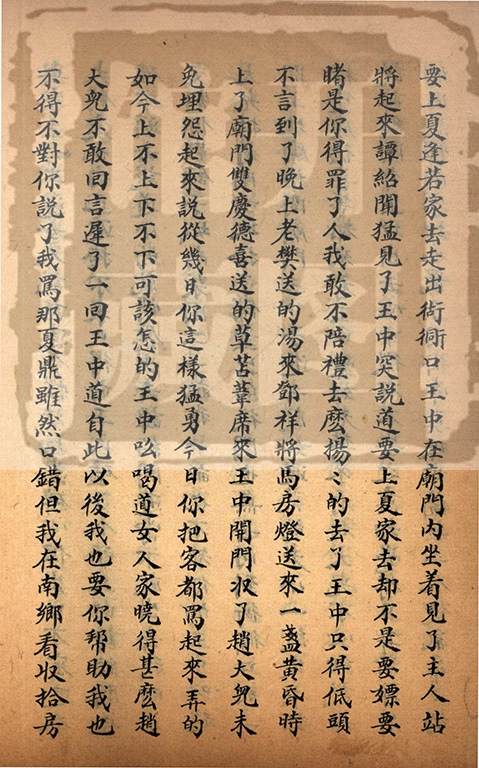 要上夏逢若家去走出衚衕口王中在廟門內坐着見了主人站
將起來譚紹聞猛見了王中笑說道要上夏家去却不是要嫖要
賭是你得罪了人我敢不陪禮去麽揚〻的去了王中只得低頭
不言到了晚上老樊送的湯來鄧祥將馬房燈送來一盞黃昏時
上了廟門雙慶德喜送的草苫葦席來王中開門收了趙大兒未
免埋怨起來說從幾日你這樣猛勇今日你把客都罵起來弄的
如今上不上下不下可該怎的王中吆喝道女人家曉得甚麽趙
大兒不敢回言遲了一回王中道自此以後我也要你幫助我也
不得不對你說了我罵那夏鼎雖然口錯但我在南鄉看收拾房